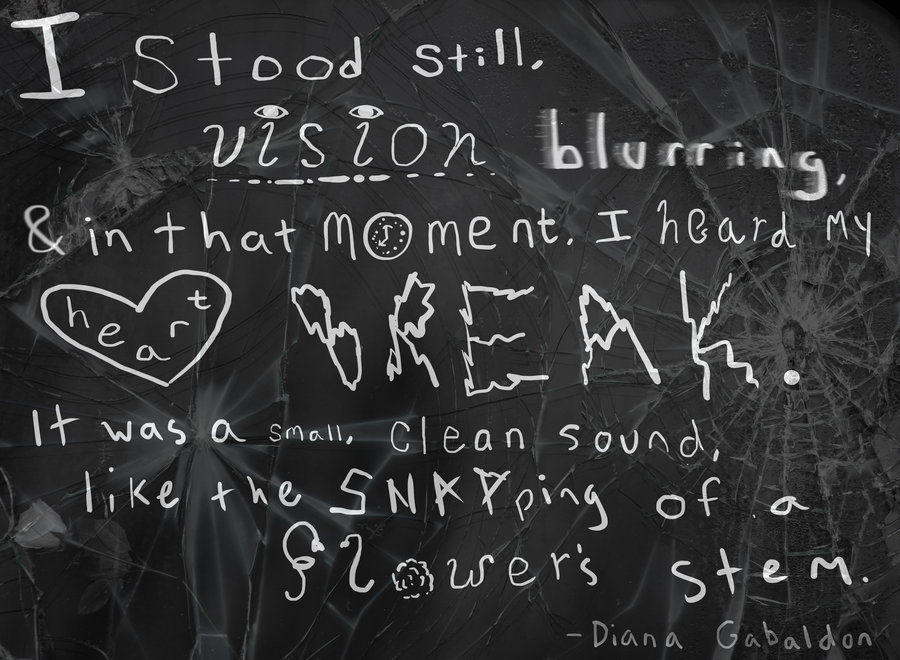 I Stood still,
vision blurring,
& in that moment. I heard my
heart BREAK.
It was a small, clean sound,
like the SNAPping of a
flower's stem.
-Diana Gabaldon